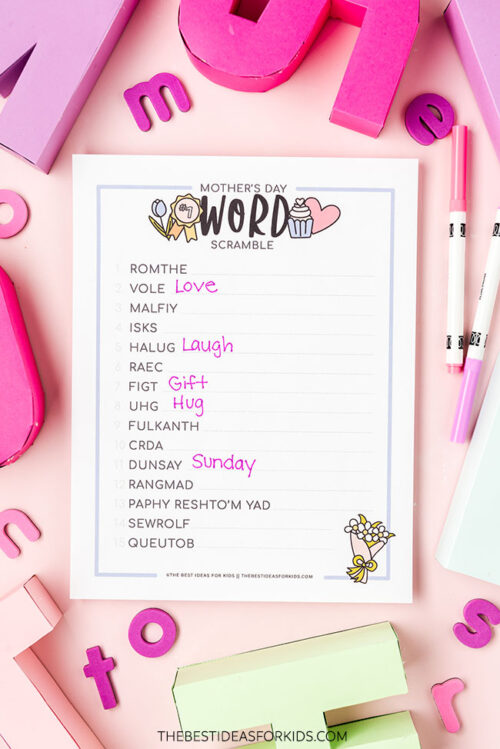 MOTHER'S DAY
#1 WORD
SCRAMBLE
1 ROMTHE
2 VOLE Love
3 MALFIY
4 ISKS
5 HALUG Laugh
6 RAEC
7 FIGT Gift
8 UHG Hug
9 FULKANTH
10 CRDA
11 DUNSAY Sunday
12 RANGMAD
13 PAPHY RESHTO'M YAD
14 SEWROLF
15 QUEUTOB
©THE BEST IDEAS FOR KIDS || THEBESTIDEASFORKIDS.COM
m
e
o
n
o
t
s
r
THEBESTIDEASFORKIDS.COM